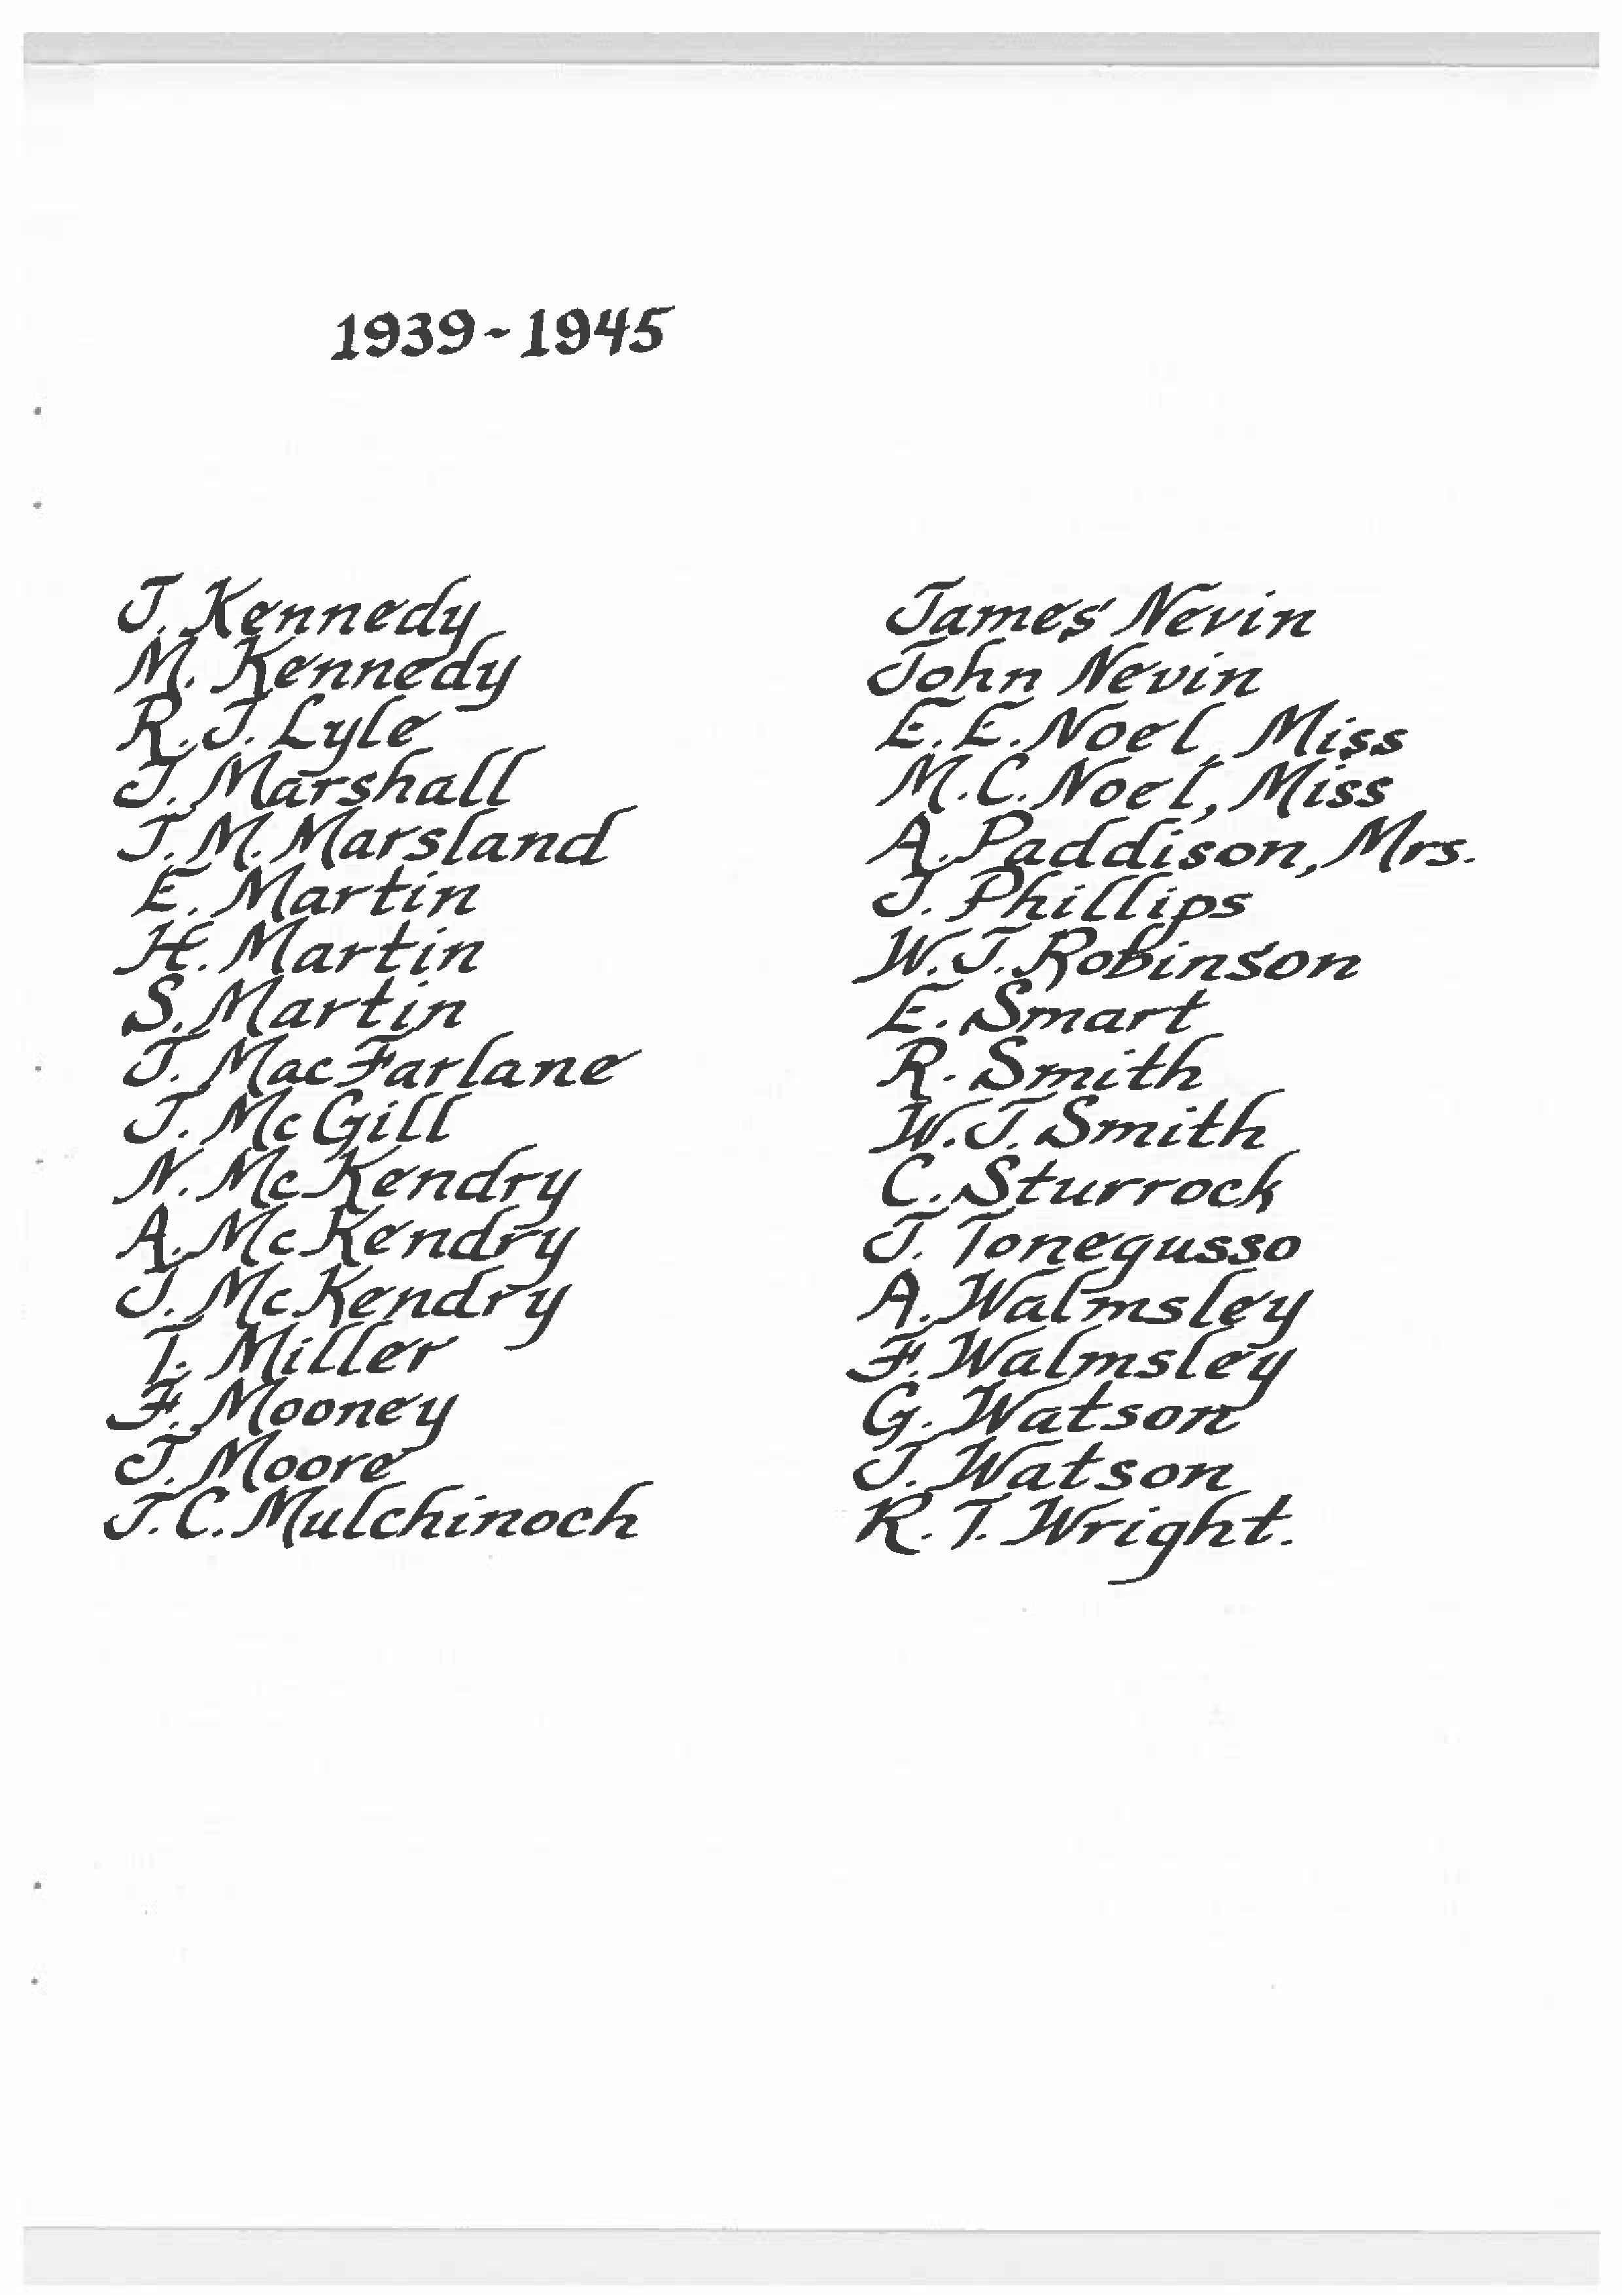 1939-1945
J. Kennedy
M. Kennedy
R.J. Lyle
J. Marshall
J.M. Marsland
E. Martin
H. Martin
S. Martin
J. MacFarlane
J. McGill
N. McKendry
A. McKendry
J. McKendry
T. Miller
F. Mooney
J. Moore
J.C. Mulchinoch
James Nevin
John Nevin
E.E. Noel, Miss
M.C. Noel, Miss
A. Paddison, Mrs.
J. Phillips
W.J. Robinson
E. Smart
R. Smith
W.J. Smith
C. Sturrock
J. Tonegusso
A. Walmsley
F. Walmsley
G. Watson
J. Watson
R.T. Wright.